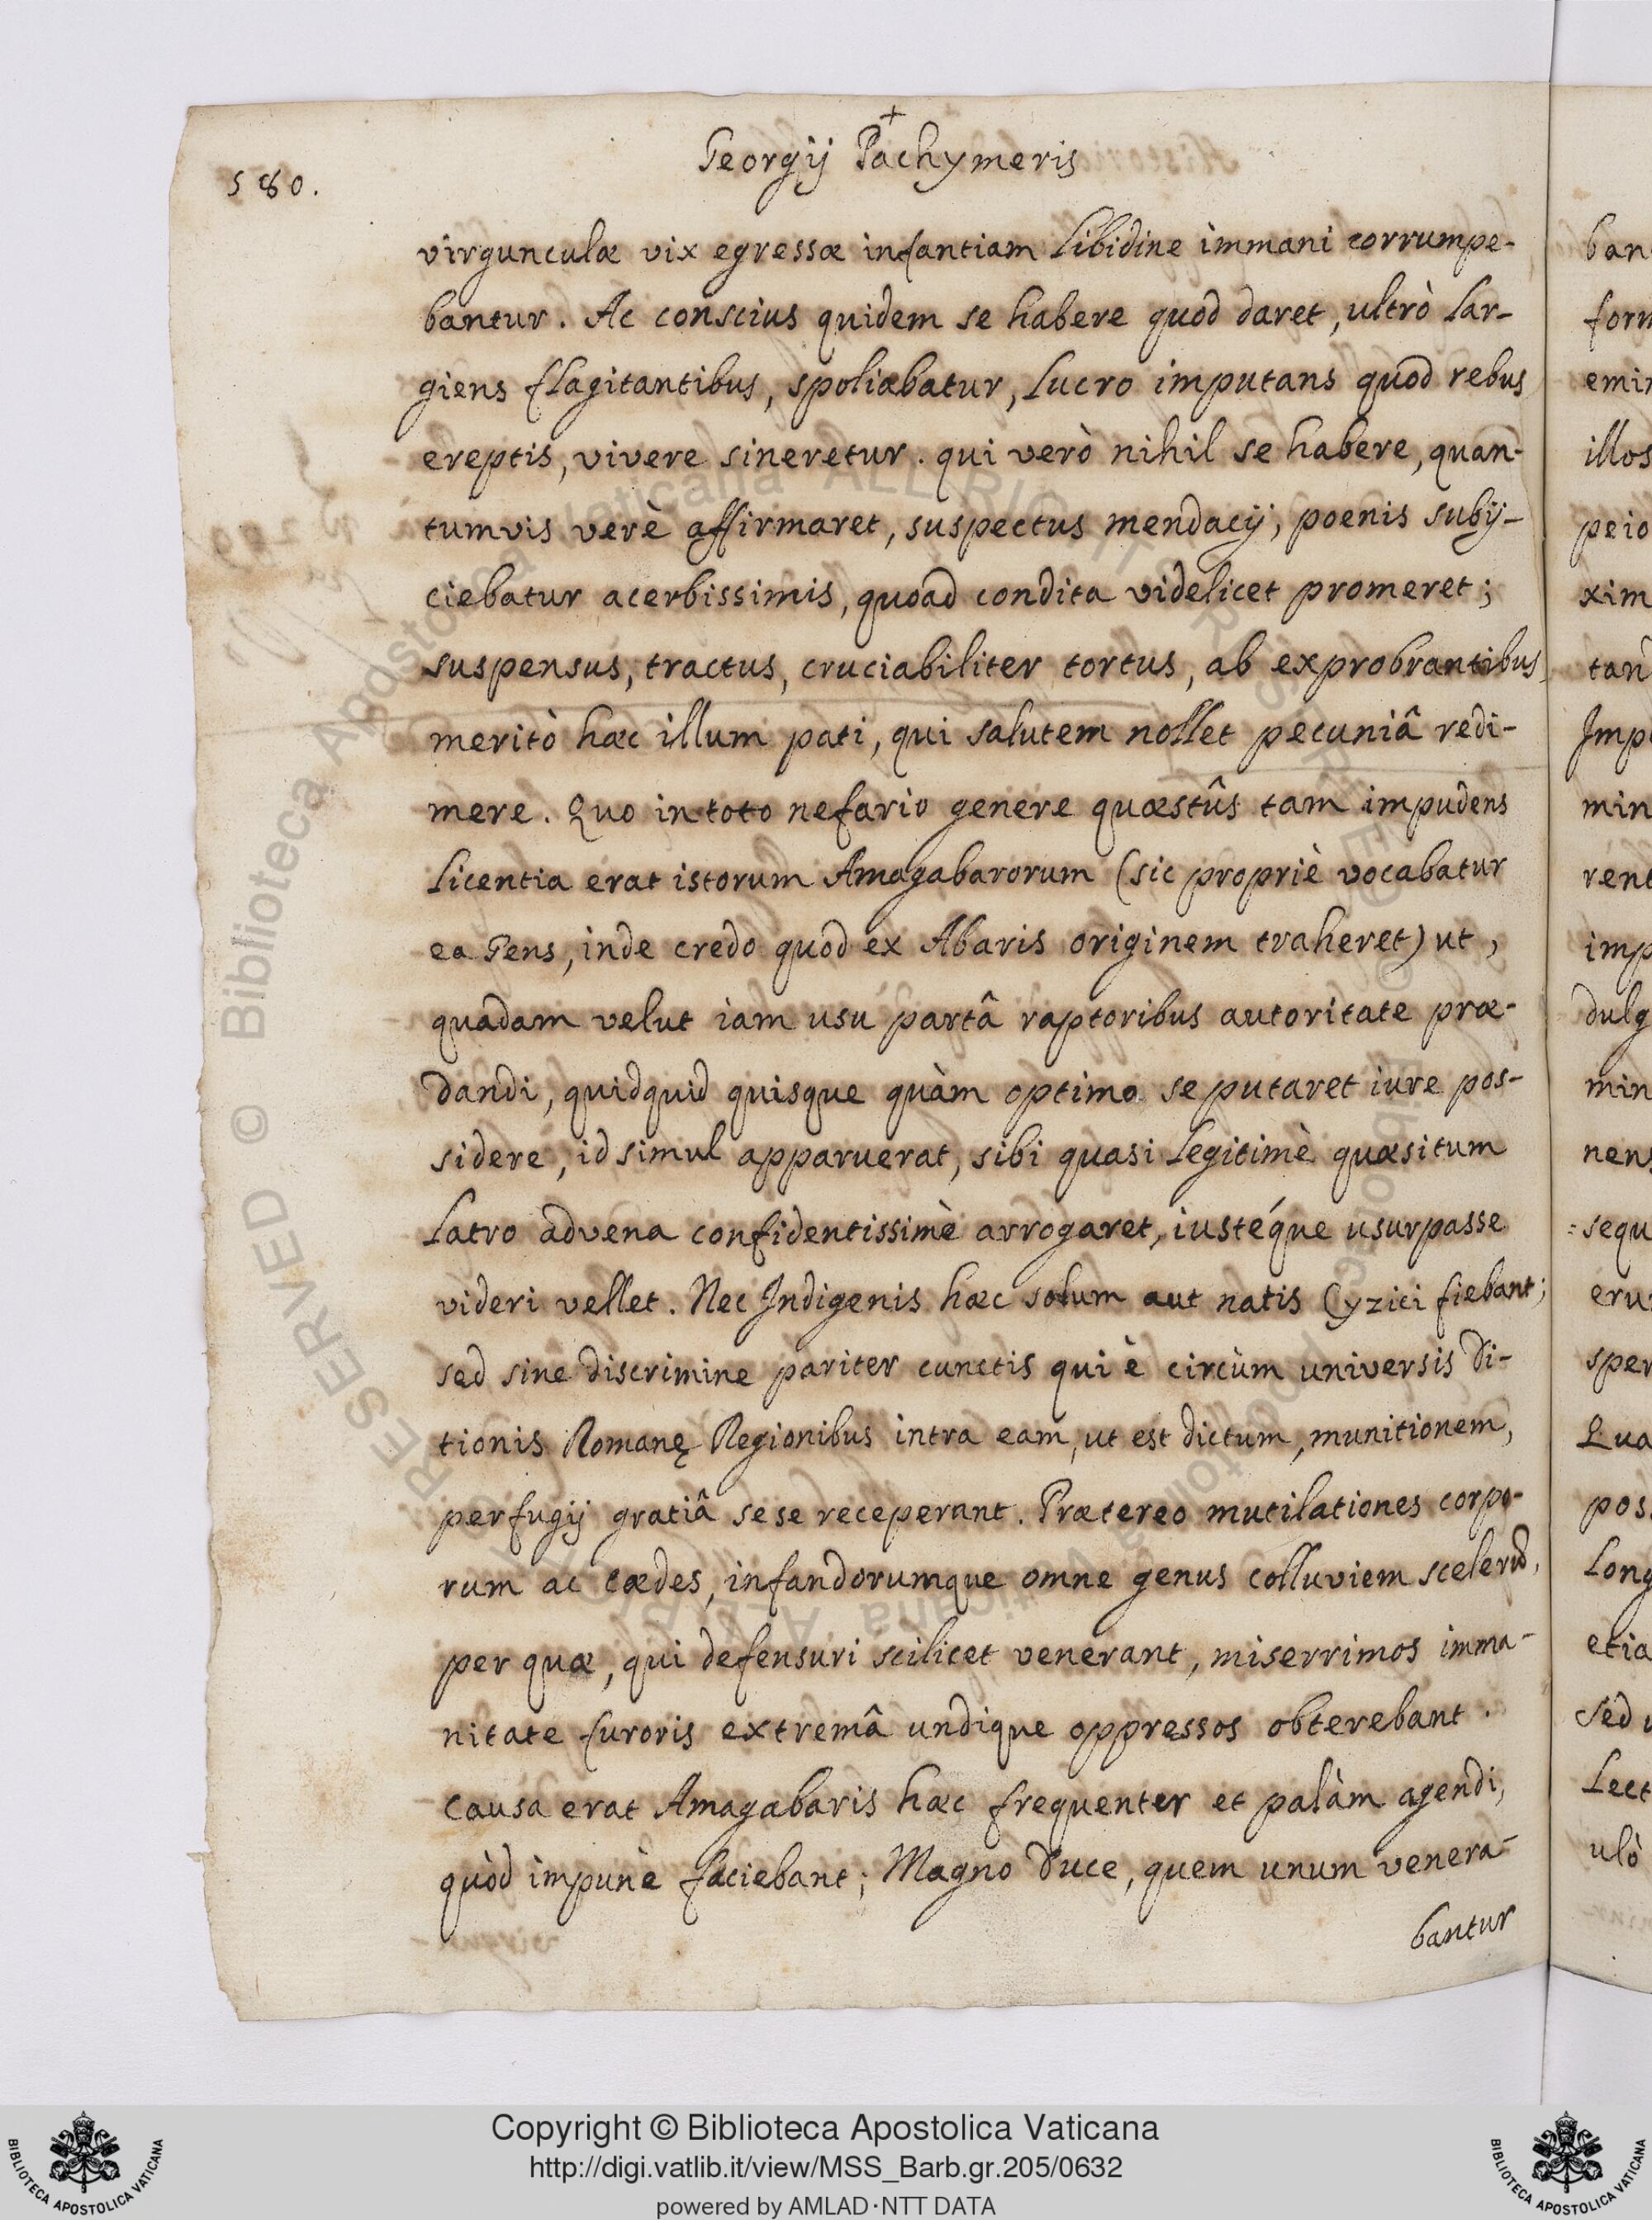 +
580.
Georgij Pachymeris
virgunculæ vix egressæ infantiam libidine immani corrumpe-
bantur. Ac conscius quidem se habere quod daret, ultrò lar-
giens flagitantibus, spoliabatur, lucro imputans quod rebus
ereptis, vivere sineretur. qui verò nihil se habere, quan-
tumvis verè affirmaret, suspectus mendacij, poenis subij-
ciebatur acerbissimis, quoad condita videlicet promeret;
suspensus, tractus, cruciabiliter tortus, ab exprobrantibus
meritò hæc illum pati, qui salutem nollet pecuniâ redi-
mere. Quo in toto nefario genere quæstûs tam impudens
licentia erat istorum Amogabarorum (sic propriè vocabatur
ea Gens, inde credo quod ex Abaris originem traheret) ut,
quadam velut iam usu partâ raptoribus autoritate præ-
dandi, quidquid quisque quàm optimo se putaret iure pos-
sidere, id simul apparuerat, sibi quasi legitimè quæsitum
latro advena confidentissimè arrogaret, iustéque usurpasse
videri vellet. Nec Indigenis hæc solum aut natis Cyzici fiebant;
sed sine discrimine pariter cunctis qui è circùm universis di-
tionis Romanę Regionibus intra eam, ut est dictum, munitionem,
perfugij gratiâ sese receperant. Prætereo mutilationes corpo-
rum ac cædes, infandorumque omne genus colluviem scelerū,
per quæ, qui defensuri scilicet venerant, miserrimos imma-
nitate furoris extremâ undique oppressos obterebant.
causa erat Amagabaris hæc frequenter et palàm agendi,
quòd impunè faciebant; Magno Duce, quem unum venera-
bantur
ban
form
emin
illos
peio
xim
tan
Imp
min
rent
imp
dulg
min
nens
sequ
eru
sper
Qua
pos
Long
etia
Sed
Lect
ulò
© Biblioteca Apostolica Vaticana ALL RIGHTS RESERVED
Copyright © Biblioteca Apostolica Vaticana
http://digi.vatlib.it/view/MSS_Barb.gr.205/0632
powered by AMLAD·NTT DATA
BIBLIOTECA APOSTOLICA VATICANA
BIBLIOTECA APOSTOLICA VATICANA